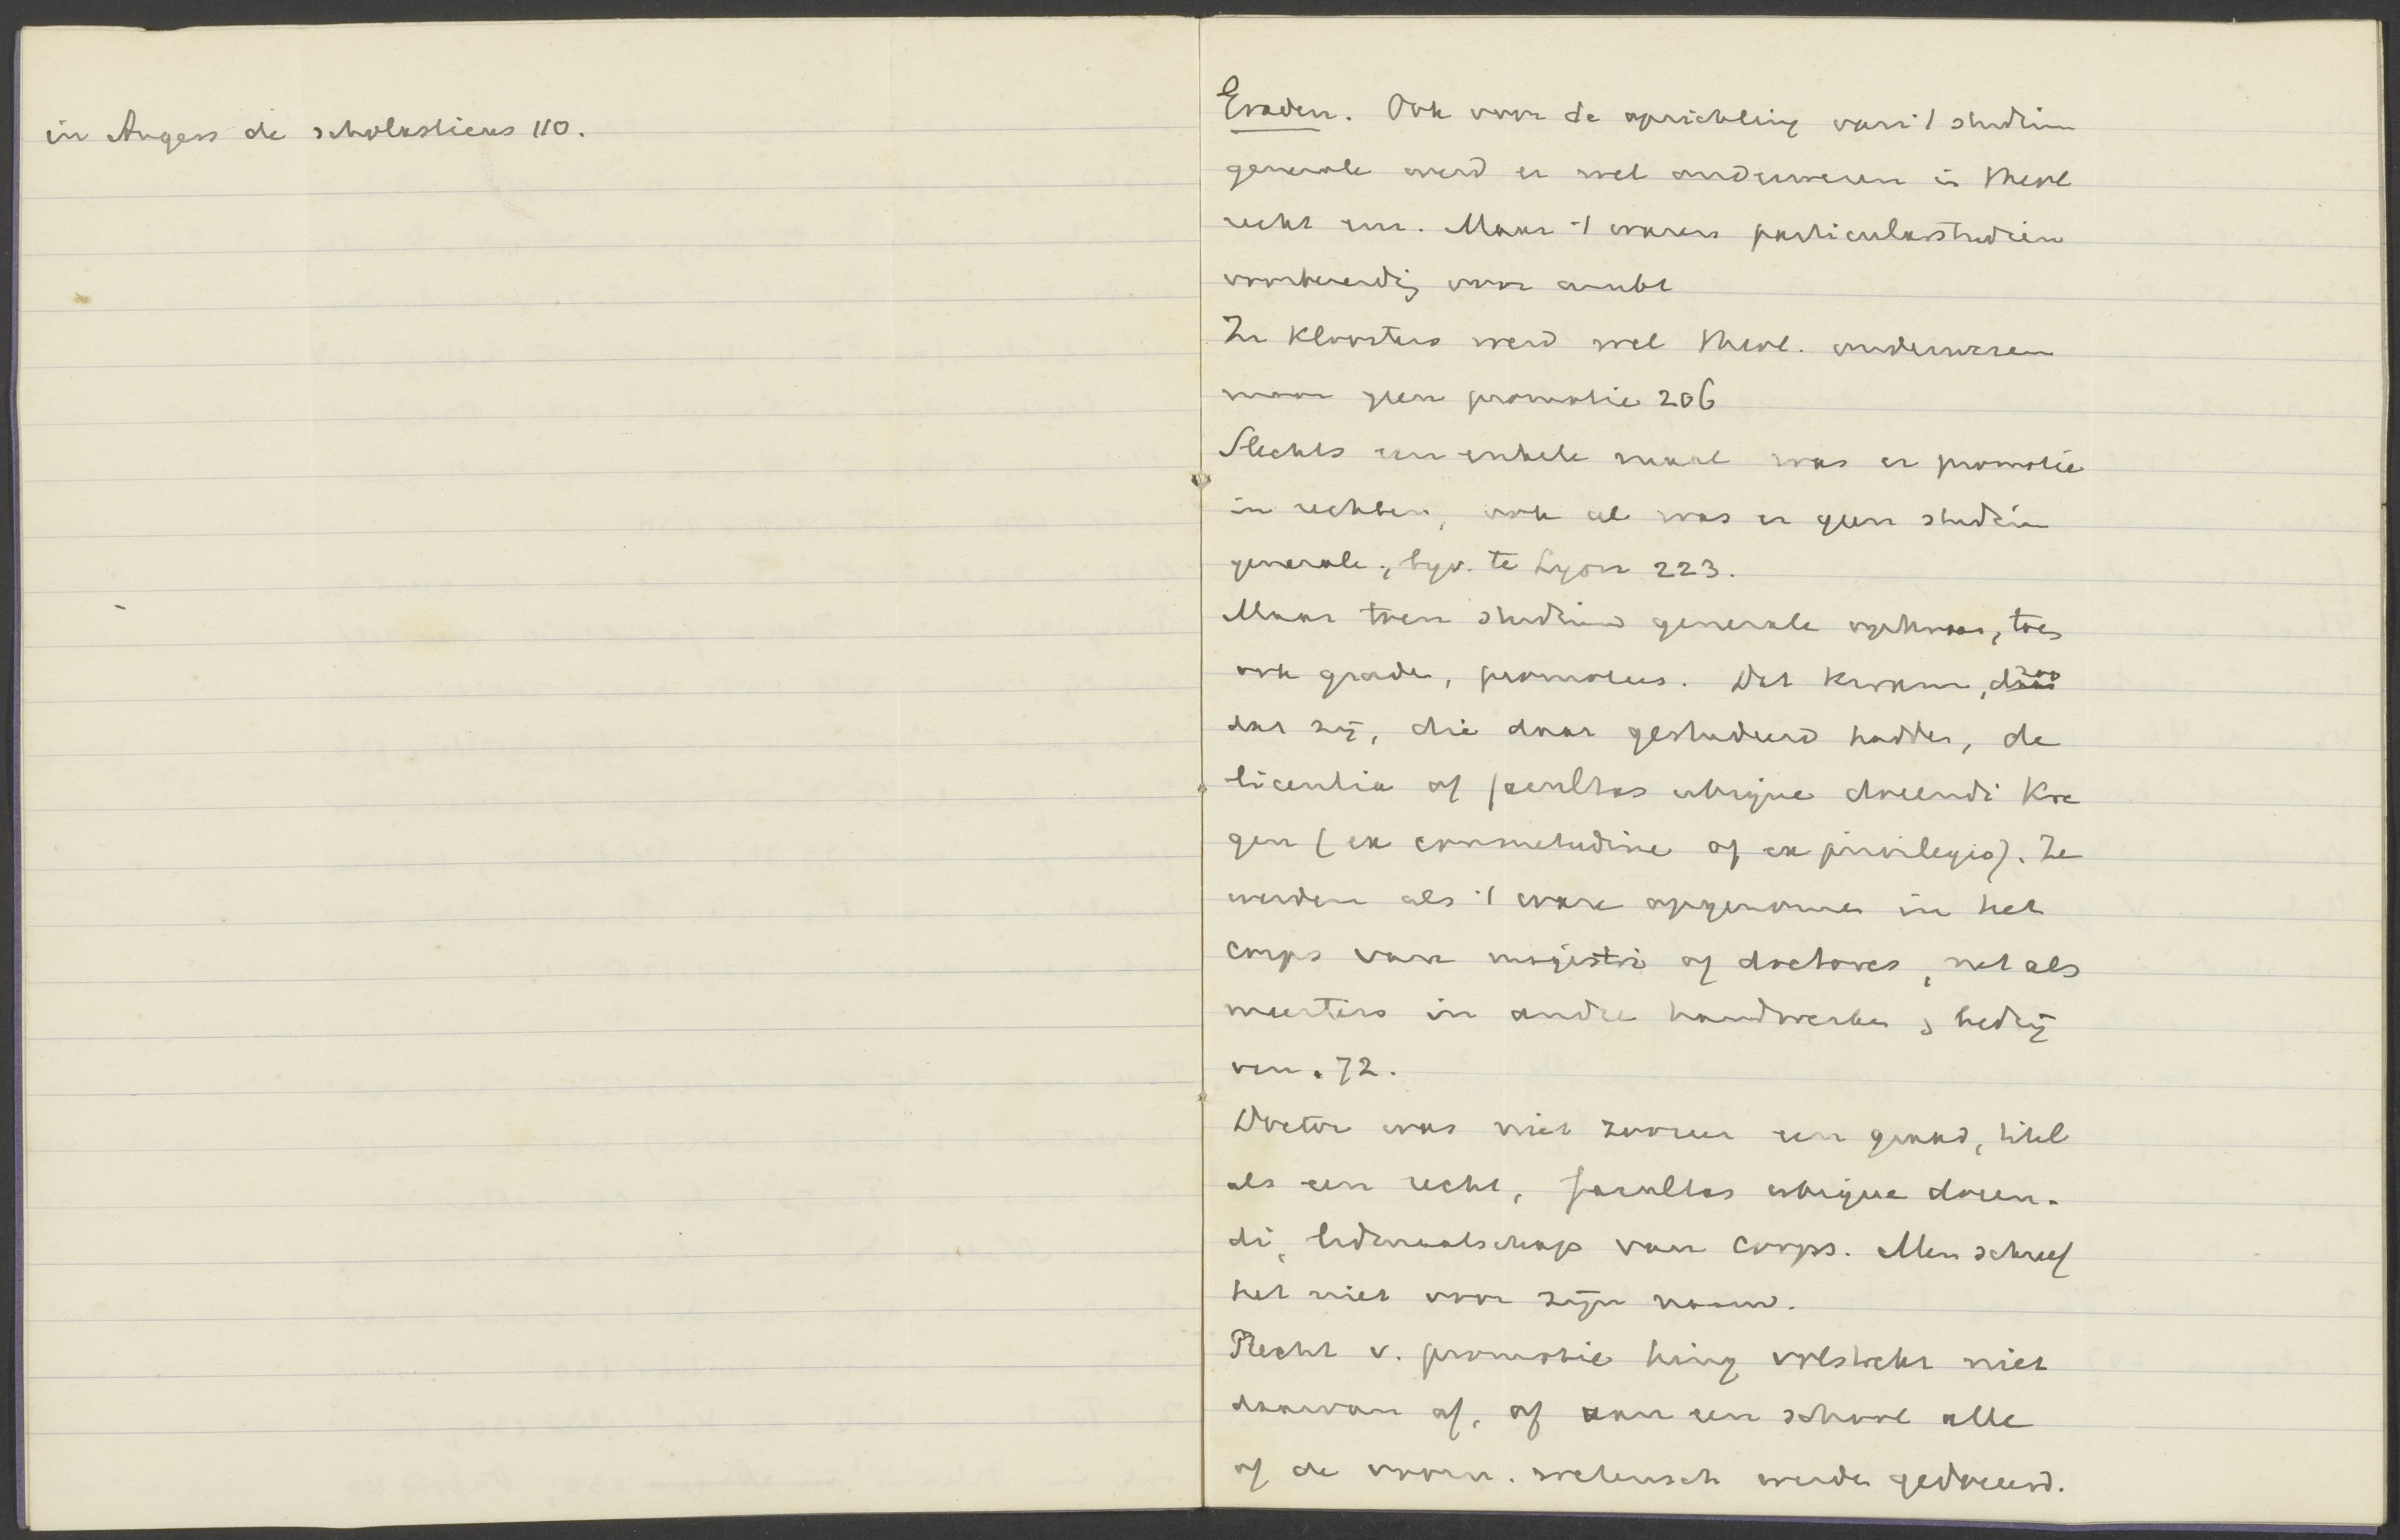 in Angers de scholasticus 110.
Graden. Ook voor de oprichting van 't studium
generale werd er wel onderwezen in theol
recht enz. Maar 't waren particularstudien
voorbereidig voor ambt
In Kloosters werd wel theol. onderwezen
maar geen promotie 206
Slechts een enkele maal was er promotie
in rechten, ook al was er geen studium
generale, byv. te Lyon 223.
Maar toen studium generale opkwam, toen
ook graden, promoties. Dat kwam,
dat zij, die daar gestudeerd hadden, de
licentia of facultas ubique docendi Kre
gen (ex consuetudine of ex privilegio). Ze
werden als 't ware opgenomen in het
corps van magistri of doctores, net als
meesters in andre handwerken, bedrij
ven. 72.
Doctor was niet zoozeer een graad, titel
als een recht, facultas ubique docen-
di, lidmaatschap van corps. Men schreef
het niet voor zijn naam.
Recht v. promotie hing volstrekt niet
daarvan af, of aan een school alle
of de voorn. wetensch werden gedoceerd.